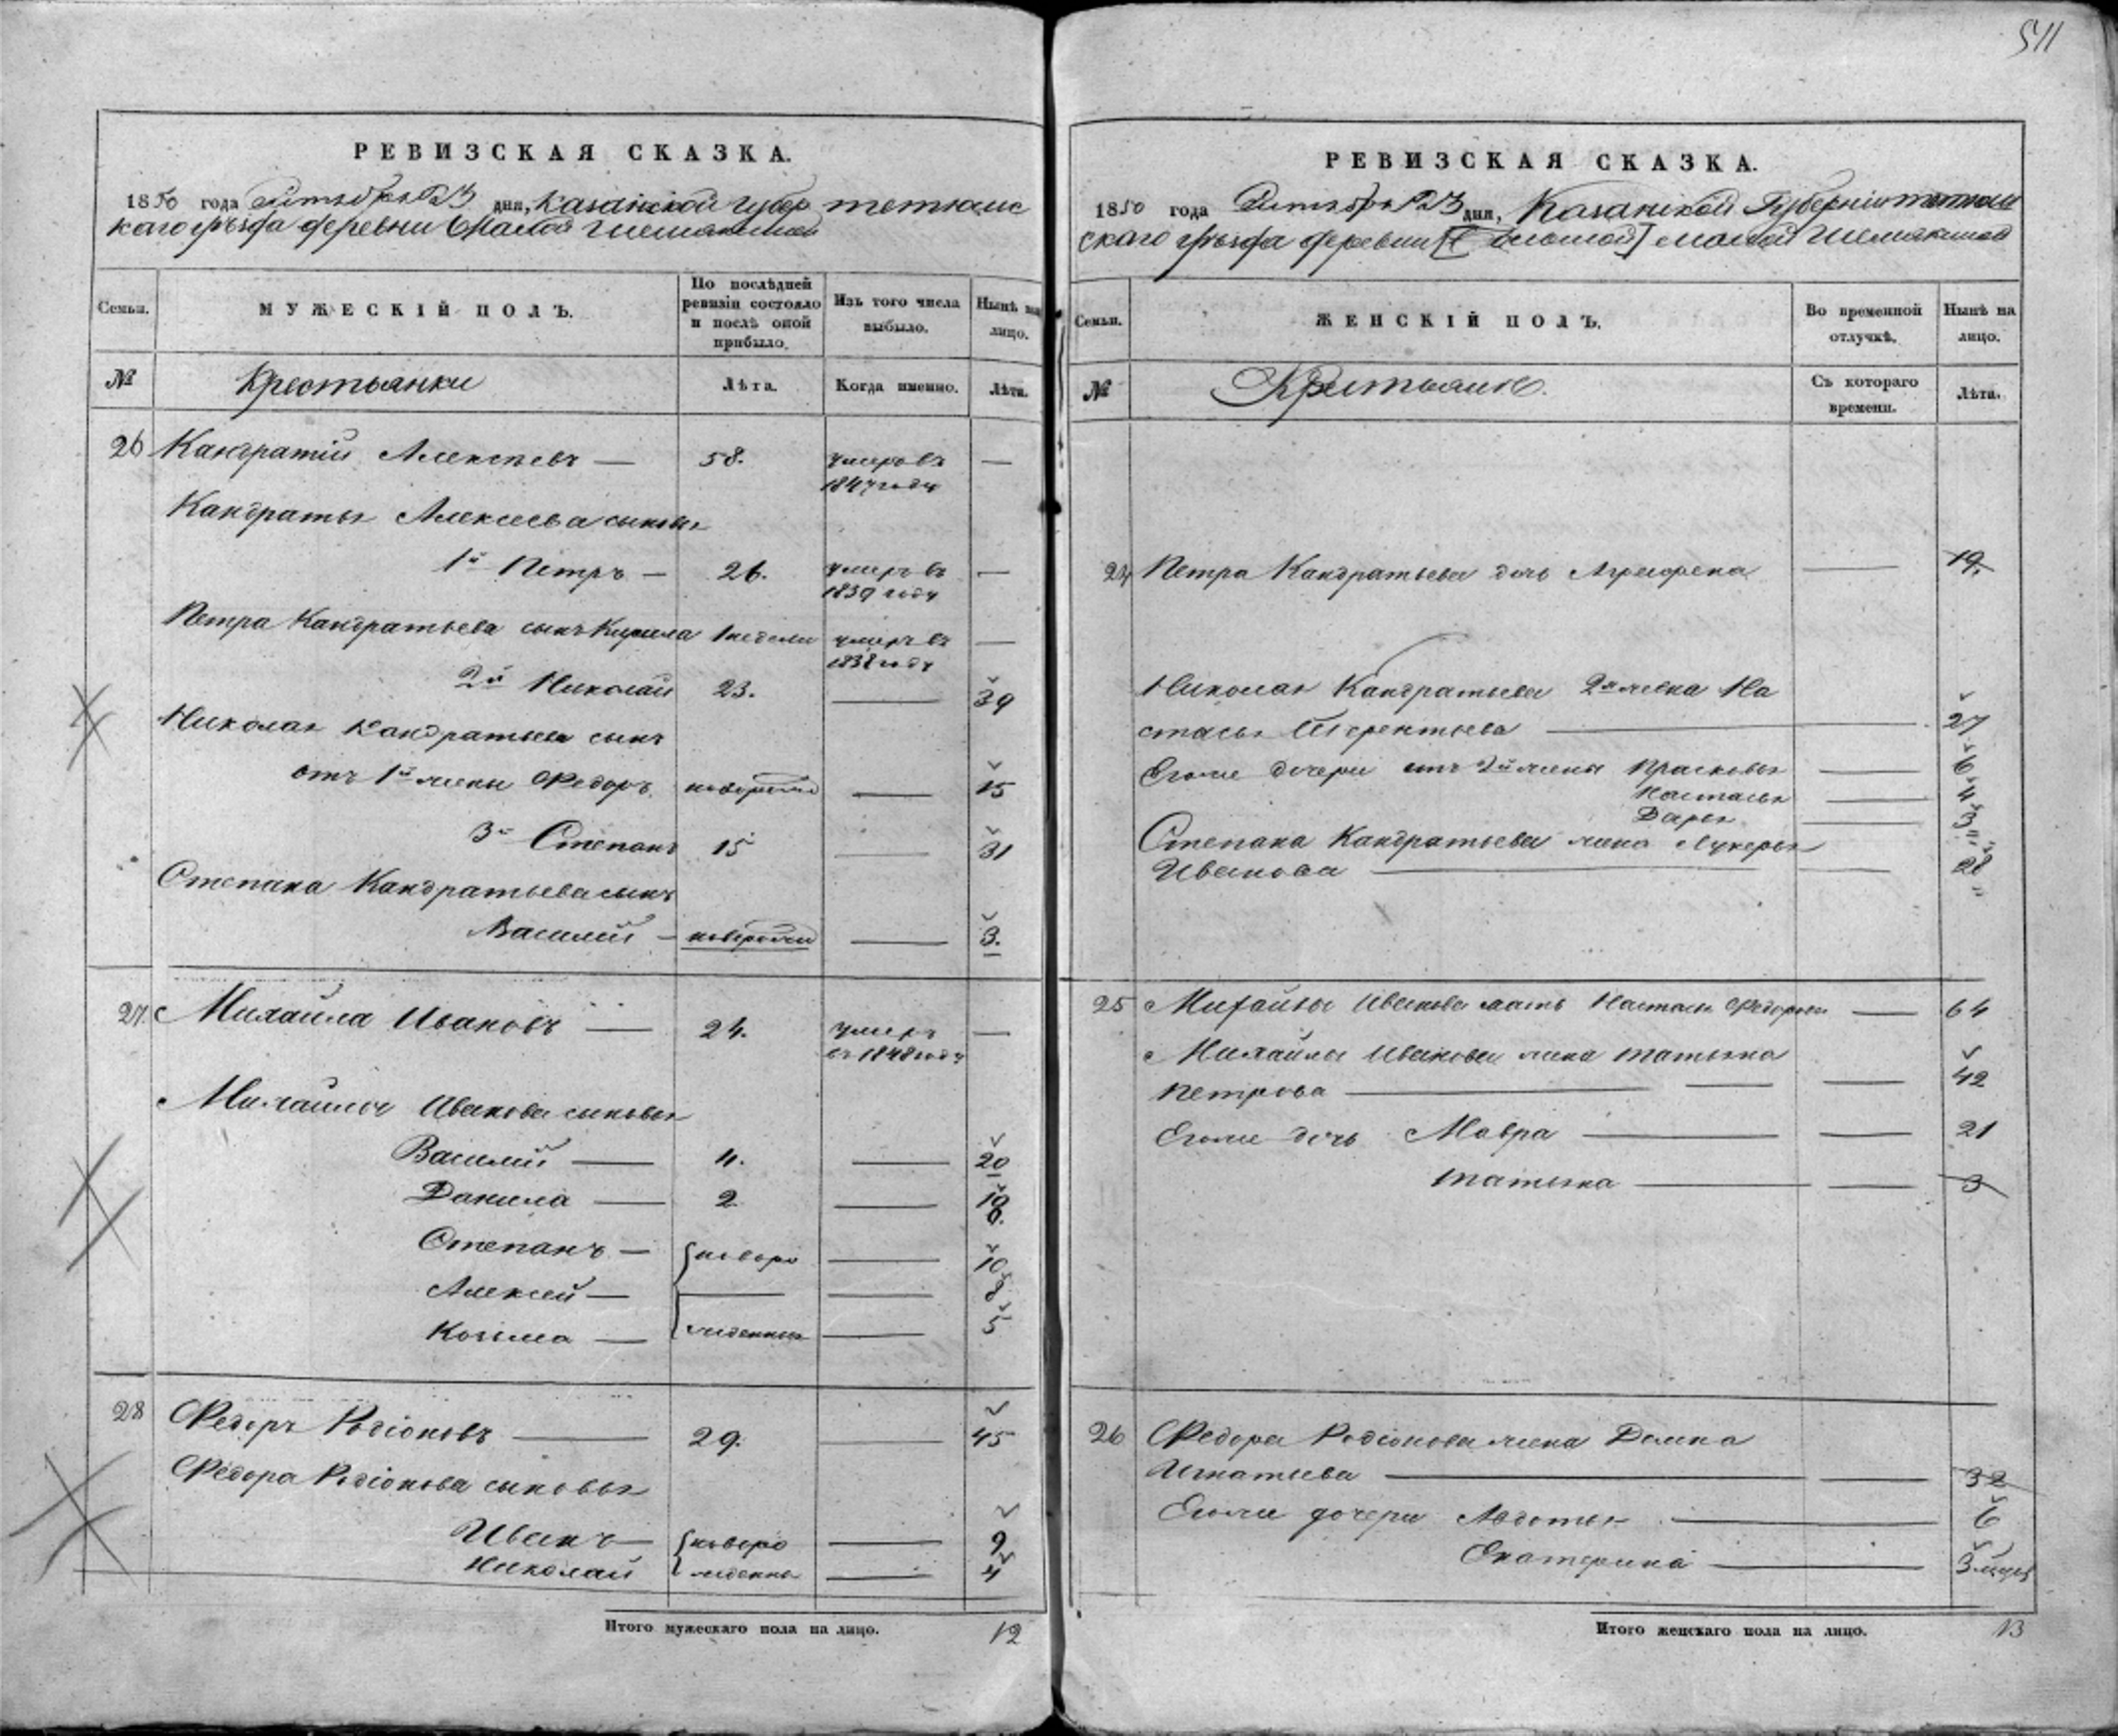 511
РЕВИЗСКАЯ СКАЗКА.
1850 года Октября 23 дня, Казанской Губер Тетюшс
каго уѣзда деревни Малой Шемякиной
Семьи.
МУЖЕСКІЙ ПОЛЪ.
По послѣдней ревизіи состояло и послѣ оной прибыло.
Изъ того числа выбыло.
Нынѣ на лицо.
№
Крестьянки
Лѣта.
Когда именно.
Лѣта.
26 Кандратій Алексѣевъ — 58. умеръ въ —
1847 году
Кандратья Алексеева сыновья
1й Петръ — 26. умеръ въ —
1839 году
Петра Кандратьева сынъ Кирила 1 недели умеръ въ —
1838 году
2й Николай 23. — 39
Николая Кандратьева сынъ
отъ 1й жены Федоръ новорожде — 15
3й Степанъ 15 — 31
Степана Кандратьева сынъ
Василий — новорожде — 3.
27. Михайла Ивановъ — 24. умеръ —
въ 1848 году
Михайлы Иванова сыновья
Василий — 4. — 20
Данила — 2 — 18.
Степанъ — новоро — 10
Алексей — — — 8
Козьма — жденныя — 5
28 Федоръ Родіоновъ — 29. — 45
Федора Родіонова сыновья
Иванъ — новоро — 9
Николай жденны — 4
Итого мужескаго пола на лицо. 12
РЕВИЗСКАЯ СКАЗКА.
1850 года Октября 23 дня, Казанской Губерніи Тетюш
скаго уѣзда деревни [Большой] Малой Шемякиной
Семьи.
ЖЕНСКІЙ ПОЛЪ.
Во временной отлучкѣ.
Нынѣ на лицо.
№
Крестьянки.
Съ котораго времени.
Лѣта.
24 Петра Кандратьева дочь Агрофена — 19.
Николая Кандратьева 2я жена На
стасья Терентьева — 27
Егоже дочери отъ 2й жены Прасковья — 6
Настасья — 4
Дарья — 3
Степана Кандратьева жена Лукерья
Иванова — — 28
25 Михайлы Иванова мать Настасья Федорова — 64
Михайлы Иванова жена Татьяна
Петрова — — — 42
Егоже дочь Мавра — — 21
Татьяна — — 3
26 Федора Родіонова жена Домна
Игнатьева — — 32
Егоже дочери Авдотья — 6
Екатерина — 3
Итого женскаго пола на лицо. 13